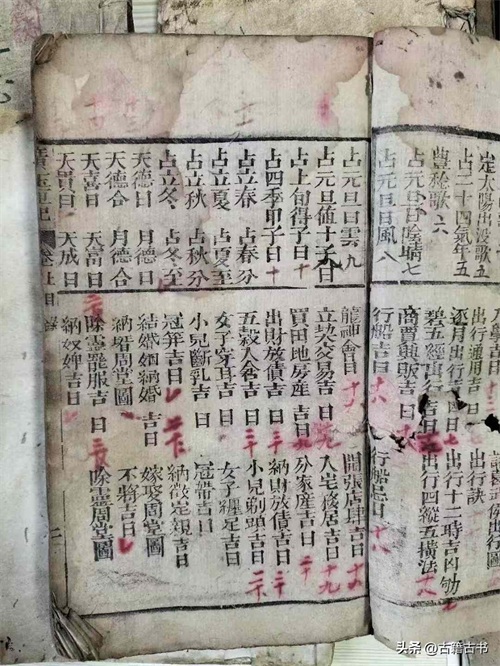 定太陽出沒歌五
占二十四氣年五
豊稔歌六
占元旦日陰晴七
占元旦日風八
逐月出行吉日 出行訣
碧玉經出行吉日 出行十二時吉凶
商賈興販吉日 出行四縱五橫法
行船吉日 十八 行船忌日 十八
占元旦日雲九
占元旦値十干日
占上旬得子日十
占四季甲子日十
占立春 占春分
占立夏 占夏至
占立秋 占秋分
占立冬 占冬至
天德日 月德日
天德合 月德合
天喜日 天富日
天貴日 天成日
龍神會日 十八 開張店肆吉日 十八
立契交易吉日 入宅移居吉日 十九
買田地房產吉日 分家產吉日
出財放債吉日 納財放債吉日
五穀入倉吉日 小兒剃頭吉日
女子穿耳吉日 女子纏足吉日
小兒斷乳吉日 冠帶吉日
冠笄吉日 納徵定親吉日
結婚姻納婚吉日 嫁娶周堂圖
納壻周堂圖 不將吉日
除靈罷服吉日 除靈周堂圖
納奴婢吉日
卷上目錄
二
头条 @古籍古书